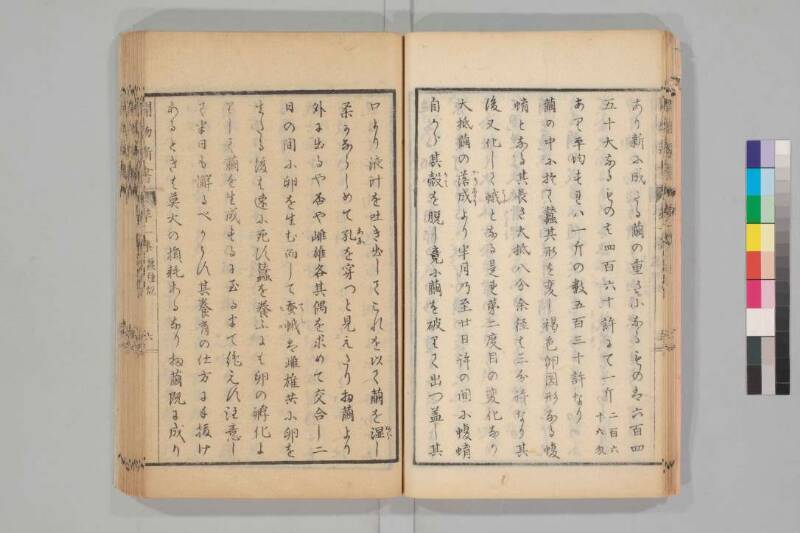 あり新に成りたる繭の重さ小なるものは六百四
五十大なるものは四百六十許にて一斤 二百六十六匁
あり平均すれハ一斤の数五百三十許なり
繭の中に於て蠶其形を変し褐色卵圓形なる蛹
となる其長さ大抵八分余径は三分許なり其
後又化して蛾となる是を第二度目の変化なり
大抵繭の落成より半月乃至廿日許の間に
自から其殻を脱し竟に繭を破りて出つ蓋し其
口より液汁を吐き出しこれを以て繭を湿し
柔かならしめて孔を穿つと見えたり扨繭より
外に出るや否や雌雄各其偶を求めて交合し二
日の間に卵を生む而して蚕蛾は雌雄共に卵を
生たる後は速に死す蠶を養ふには卵の孵化よ
りして繭を生成するに至るまて絶えす注意し
て半日も懈るべからす其養育の仕方に手抜け
あるときは莫大の損耗あるなり扨繭既に成り
開物新書 準一集 蠶種
六